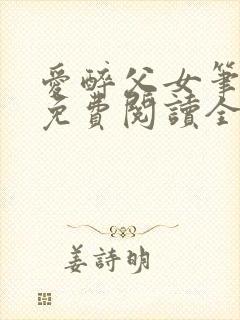 愛醉父女筆
免費閱讀全
姜詩明